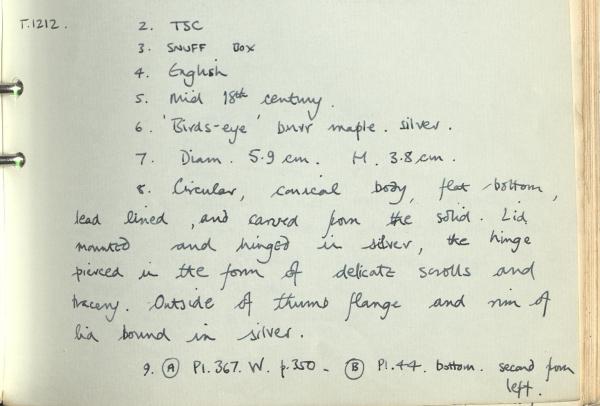 T.1212. 2. TSC
3. SNUFF BOX
4. English
5. Mid 18th century.
6. 'Birds-eye' burr maple. silver.
7. Diam. 5.9 cm. H. 3.8 cm.
8. Circular, conical body, flat bottom,
lead lined, and carved from the solid. Lid
mounted and hinged in silver, the hinge
pierced in the form of delicate scrolls and
tracery. Outside of thumb flange and rim of
lid bound in silver.
9. (A) Pl. 367. W. p.350 - (B) Pl. 44. bottom. second from
left.